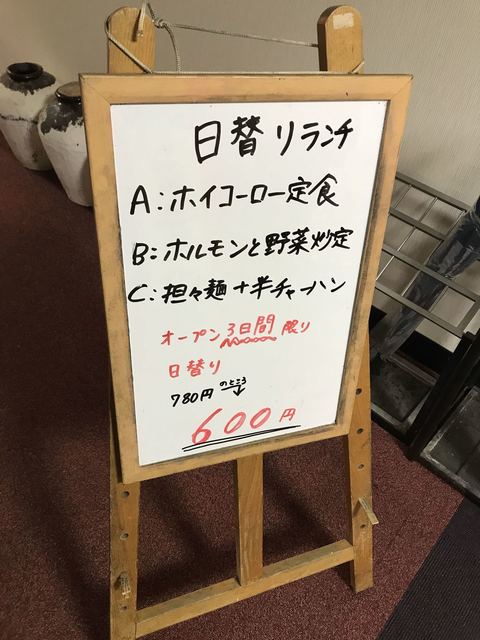 日替りランチ
A:ホイコーロー定食
B:ホルモンと野菜炒定
C:担々麺+半チャーハン
オープン3日間限り
日替り
780円のところ
600円